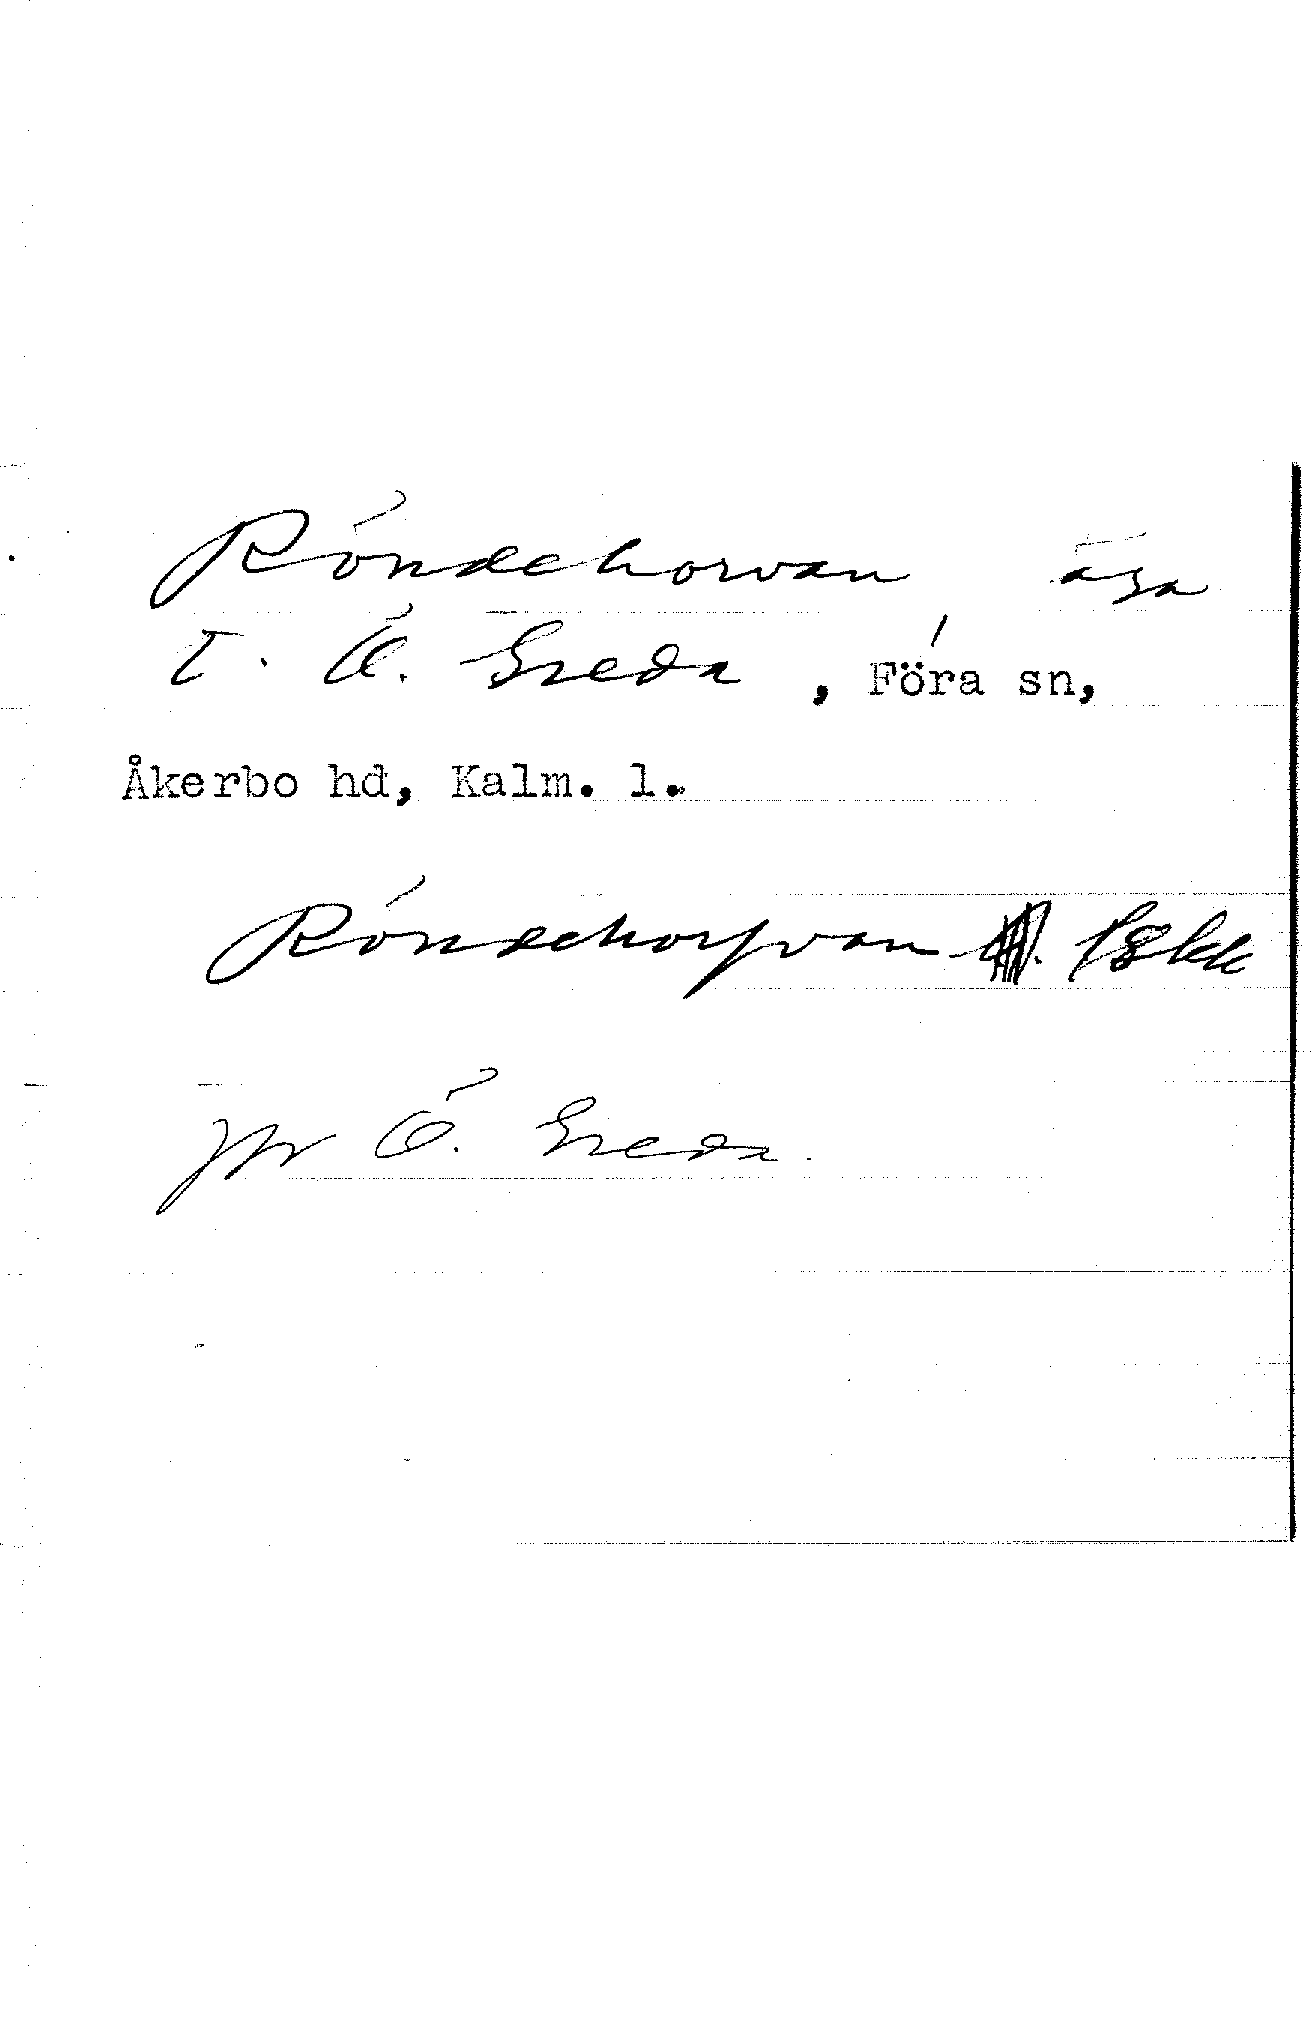 Röndehorvan, äga
t. Ö. Greda, Föra sn,
Åkerbo hd, Kalm. l.
Röndehorfvan 1844
Ö. Greda.